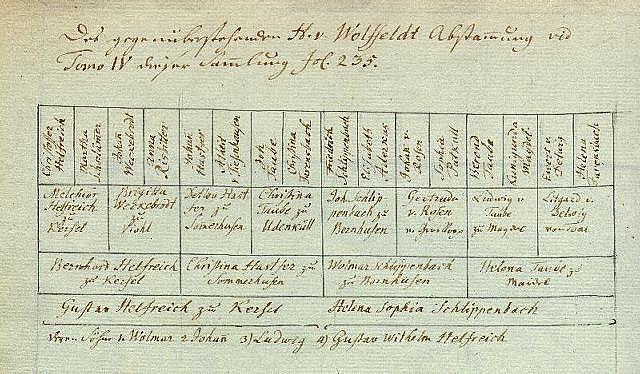 Des gegenüberstehenden H. v. Wolffeldt Abstammung vid
Tomo IV dieser Sammlung fol. 235.
Christoffer Helfreich
Martha
Johañ Weckebrodt
Anna
Johañ Hastfer
Joh Taube
Christina
Friedrich Schlippenbach
Elisabeth
Johann v. Rosen
Sophia Patkull
Berend Taube
Kunigunda Maydel
Evert v. Delwig
Helena
Melchior Helfreich zu Kersel
Brigitta Weckebrodt zu
Detlov Hastfer zu Somerhusen
Christina Taube zu Udenküll
Joh. Schlippenbach zu Bornhusen
Gertruda v. Rosen
Ludwig v Taube zu Maydel
Litgard v. Delwig
Bernhard Helfreich zu Kersel
Christina Hastfer zu Sommerhusen
Wolmar Schlippenbach zu Bornhusen
Helena Taube zu Maidel
Gustav Helfreich zu Kersel
Helena Sophia Schlippenbach
deren Söhne 1. Wolmar 2 Johañ 3) Ludwig 4) Gustav Wilhelm Helfreich